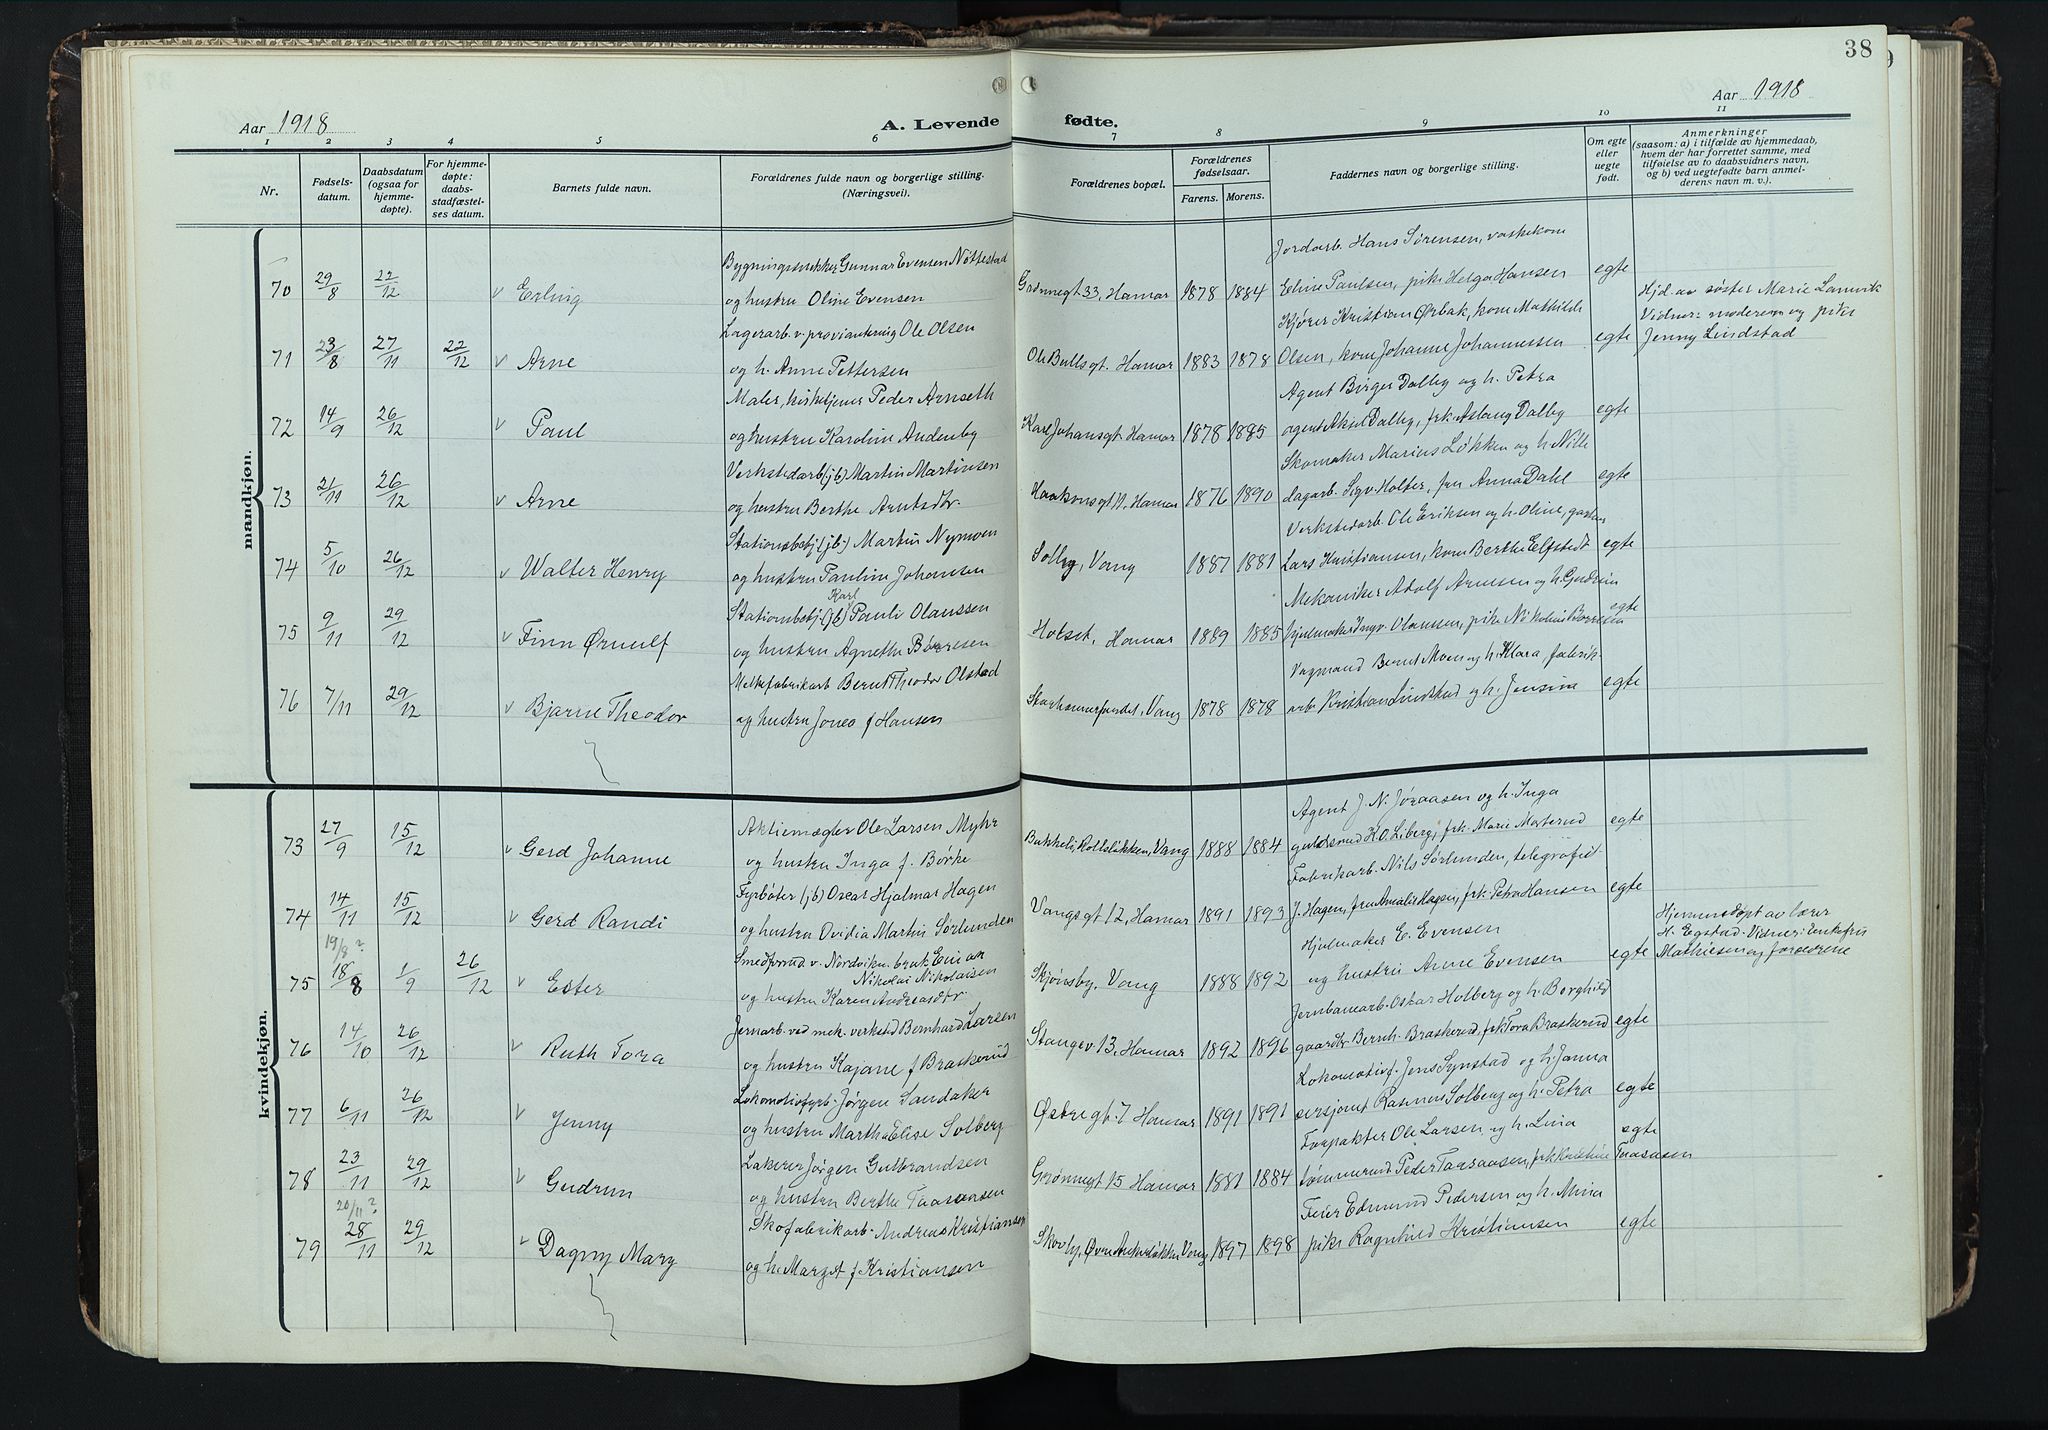 38
Aar 1918
A. Levende fødte.
Aar 1918
1 2 3 4 5 6 7 8 9 10 11
Nr.
Fødselsdatum.
Daabsdatum (ogsaa for hjemmedøpte).
For hjemmedøpte: daabsstadfæstelses datum.
Barnets fulde navn.
Forældrenes fulde navn og borgerlige stilling. (Næringsvei).
Forældrenes bopæl.
Forældrenes fødselsaar.
Farens. Morens.
Faddernes navn og borgerlige stilling.
Om egte eller uegte født.
Anmerkninger (saasom: a) i tilfælde av hjemmedaab, hvem der har forrettet samme, med tilføielse av to daabsvidners navn, og b) ved uegtefødte barn anmelderens navn m. v.).
mandkjøn.
70 29/8 22/12 v Erling
Bygningssnekker Gunnar Evensen Nöttestad
og hustru Oline Evensen
Grönnegt 33, Hamar 1878 1884
Jordarb. Hans Sørensen, vaskekone
Eline Paulsen, pike Helga Hansen
egte
71 23/8 27/11 22/12 v Arne
Lagerarb. v. proviantering Ole Olsen
og h. Anne Pettersen
Ole Bullsgt. Hamar 1883 1878
Kjører Kristian Ørbak, kone Mathilde
Olsen, kone Johanne Johannessen
egte
Hjd. av søster Marie Lamvik
Vidner: moderen og pike
Jenny Lindstad
72 14/9 26/12 v Paul
Maler, kirketjener Peder Arnseth
og hustru Karoline Andenby
Karl Johansgt. Hamar 1878 1885
Agent Birger Dalby og h. Petra
agent Aksel Dalby, frk. Aslaug Dalby
egte
73 21/11 26/12 v Arne
Verkstedarb (jb) Martin Martinsen
og hustru Berthe Arntsdtr.
Haakonsgt 11. Hamar 1876 1890
Skomaker Marius Løkken og h. Nille
dagarb. Sigv. Holter, fru Anna Dahl
egte
74 5/10 26/12 v Walter Henry
Stationsbetj (jb.) Martin Nymoen
og hustru Pauline Johansen
Solby, Vang 1887 1881
Verkstedarb. Ole Eriksen og h. Oline, gartner
Lars Kristiansen, kone Berthe Elfstedt
egte
75 9/11 29/12 v Finn Ørnulf
Karl
Stationsbetj (jb) Pauli Olaussen
og hustru Agnethe Børresen
Holset, Hamar 1889 1885
Mekaniker Adolf Arnesen og h. Gudrun
hjulmaker Ingv. Olaussen, pike Nikoline Børresen
egte
76 7/11 29/12 v Bjarne Theodor
Melkefabrikarb Bernt Theodor Olstad
og hustru Jonea f Hansen
Storhamarfundet, Vang 1878 1878
Vognmand Bernt Moen og h. Klara, fabrik-
arb. Kristian Lindstad og h. Jensine
egte
kvindekjøn.
73 27/9 15/12 v Gerd Johanne
Aktiemægler Ole Larsen Myhr
og hustru Inga f. Børke
Bakkeli, Rollsløkken, Vang 1888 1884
Agent J. N. Jøraasen og h. Inga
guldsmed K. O. Liberg, frk. Marie Masterud
egte
74 14/11 15/12 v Gerd Randi
Fyrbøter (jb) Oscar Hjalmar Hagen
og hustru Ovidia Martin Sörlunden
Vangsgt 12, Hamar 1891 1893
Fabrikarb. Nils Sørlunden, telegrafist
J. Hagen, fru Amalie Hagen, frk. Petra Hansen
egte
75 19/8? 18/8 1/9 26/12 v Ester
Smedsvend v. Nordviken. bruk Einar
Nikolai Nikolaisen
og hustru Karen Andreasdtr.
Skjønsby, Vang 1888 1892
Hjulmaker E. Evensen
og hustru Anne Evensen
egte
Hjemmedøpt av lærer
H. Egstad. Vidner: Enkefru
Mathiesen og forældrene
76 14/10 26/12 v Ruth Tora
Jernarb. ved mek. verksted Bernhard Larsen
og hustru Kajane f Braskerud
Stangev. 13, Hamar 1892 1896
Jernbanearb. Oskar Holberg og h. Borghild
gaardbr Bernh. Braskerud, frk Tora Braskerud
egte
77 6/11 26/12 v Jenny
Lokomotivfyrb. Jörgen Sandaker
og hustru Martha Elise Solberg
Østregt. 7 Hamar 1891 1891
Lokomotivf. Jens Synstad og h. Janna
sersjant Rasmus Solberg og h. Petra
egte
78 23/11 29/12 v Gudrun
Lakerer Jörgen Gulbrandsen
og hustru Berthe Taasaasen
Grønnegt 15 Hamar 1881 1884
Forpakter Ole Larsen og h. Lina
tømmermd Peder Taasaasen, frk Kristine Taasaasen
egte
79 20/11? 28/11 29/12 v Dagny Mary
Skofabrikarb. Andreas Kristiansen
og h. Margit f Kristiansen
Skovly, Øvre Ankerløkken Vang 1897 1898
Feier Edmund Pedersen og h. Mina
pike Ragnhild Kristiansen
egte